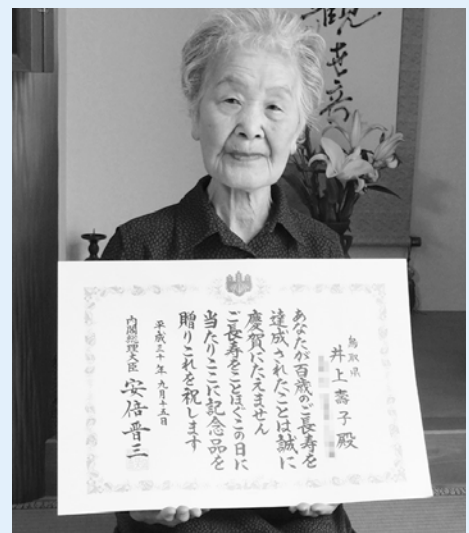 観世音
鳥取県
井上壽子殿
あなたが百歳のご長寿を
達成されたことは誠に
慶賀にたえません
ご長寿をことほぐこの日に
当たりここに記念品を
贈りこれを祝します
平成三十年九月十五日
内閣総理大臣 安倍晋三